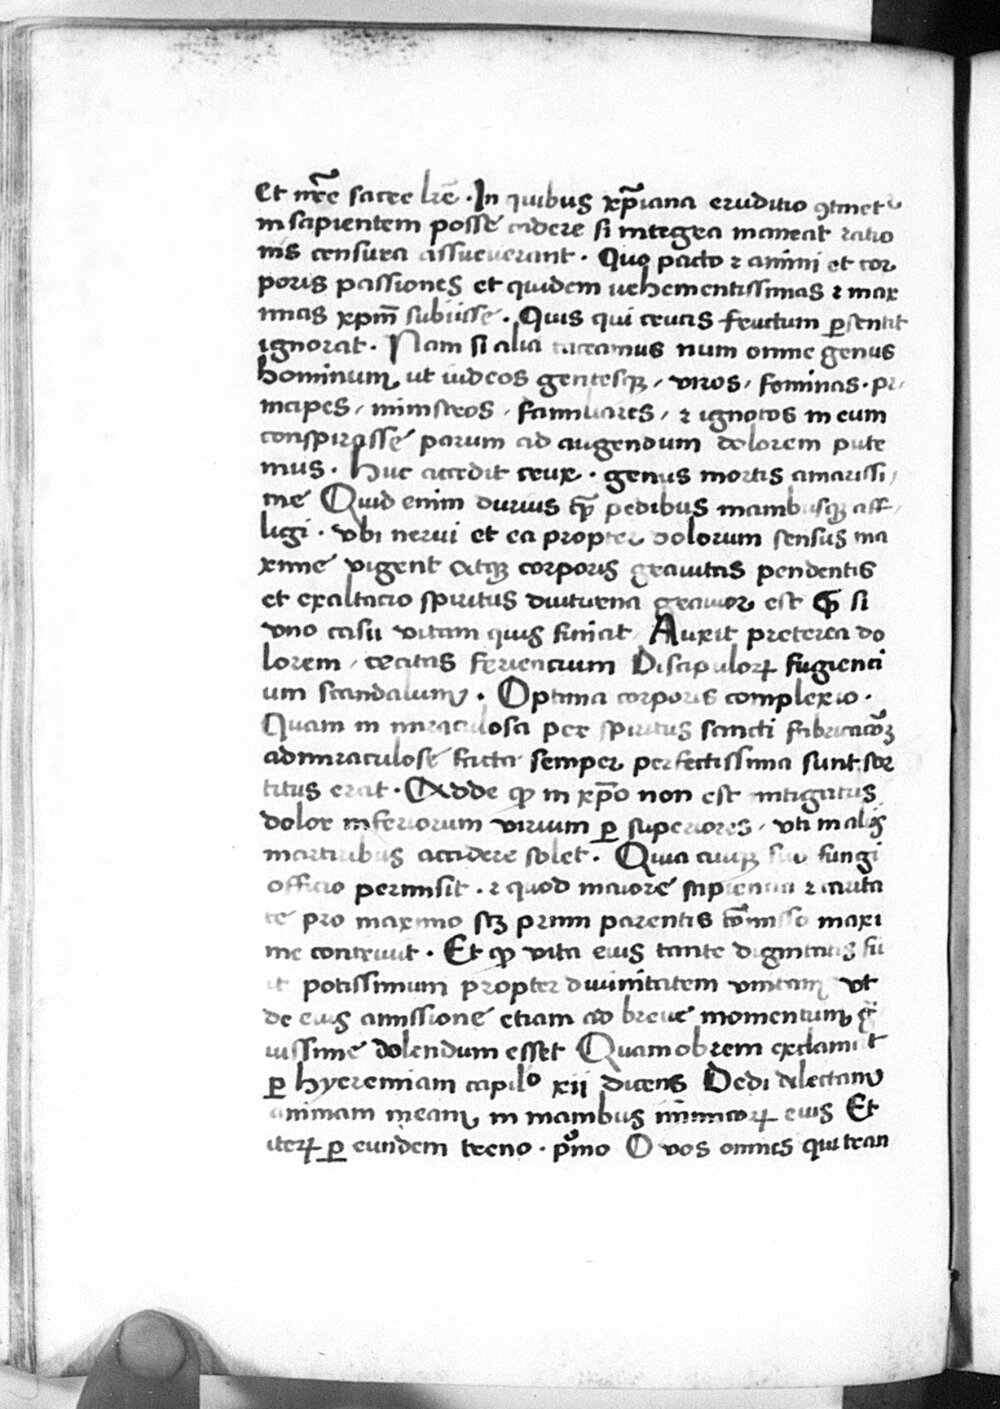 Et nr̄e sacre lr̄e . In quibus xp̄iana eruditio ꝯtinet᷑
in sapientem posse cadere si integra maneat ratio
nis censura assueuerant . Quo pacto ⁊ animi et cor
poris passiones et quidem uehementissimas ⁊ max
imas xpm̄ subiisse . Quis qui crucis fructum ꝑsentit
ignorat . Nam si alia taceamus num omne genus
hominum ut iudeos gentesqꝫ / viros / feminas . pri
ncipes / ministros / familiares / ⁊ ignotos in eum
conspirasse parum ad augendum dolorem pute
mus . Huc accedit crux . genus mortis amarissi
me Quid enim durius qꝫ̄ pedibus manibusqꝫ aff
ligi . vbi nerui et ea propter dolorum sensus ma
xime vigent Atqꝫ corporis grauitas pendentis
et exaltacio spiritus diuturna grauior est Ꝙ si
vno casu vitam quis finiat / Auxit preterea do
lorem / cecitas ferientium Discipuloꝝ fugienci
um scandalum . Optima corporis complexio .
Quam in miraculosa per spiritus sancti fabricacōꝫ
ad miraculose facta semper perfectissima sunt sor
titus erat . Adde ꝙ in xp̄o non est mitigatus
dolor inferiorum virium ꝑ superiores / vti in aliis
martiribus accidere solet . Quia cuiqꝫ suo fungi
officio permisit . ⁊ quod maiore sapientia ⁊ carita
te pro maximo scꝫ primi parentis cōmisso maxi
me contriuit . Et ꝙ vita eius tante dignitatis fu
it potissimum propter diuinitatem vnitam vt
de eius amissione etiam ad breue momentum gͣ
uissime dolendum esset Quamobrem exclamat
ꝑ hyeremiam capilo xii dicens Dedi dilectam
animam meam in manibus inimicoꝝ eius Et
iteꝝ ꝑ eundem treno . pͥmo O vos omnes qui tran